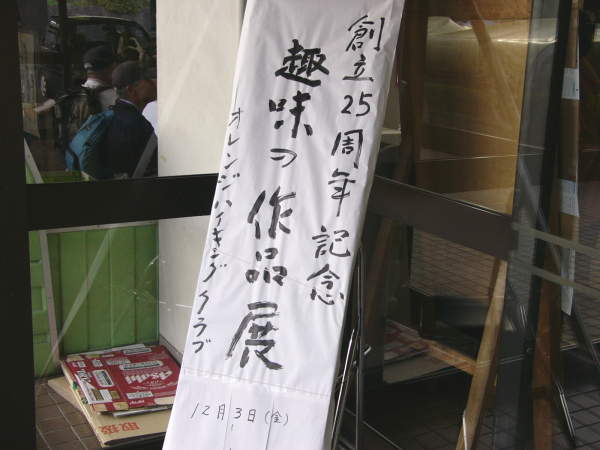 創立25周年記念
趣味の作品展
オレンジハイキングクラブ
12月3日(金)
Asahi
取扱